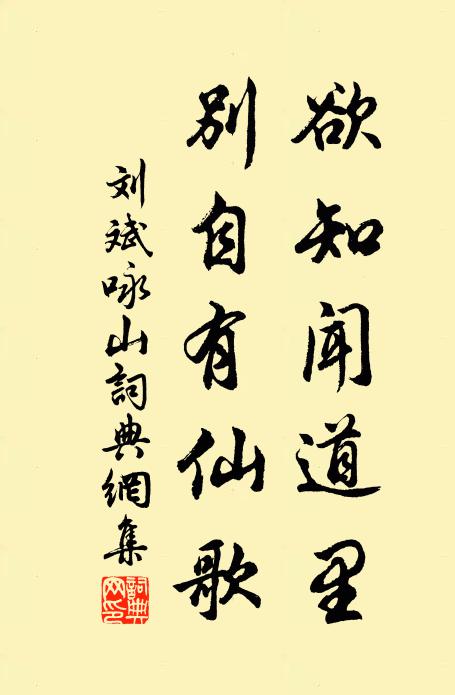 欲知闻道里
别自有仙歌
刘斌咏山詞典網集
詞典网印